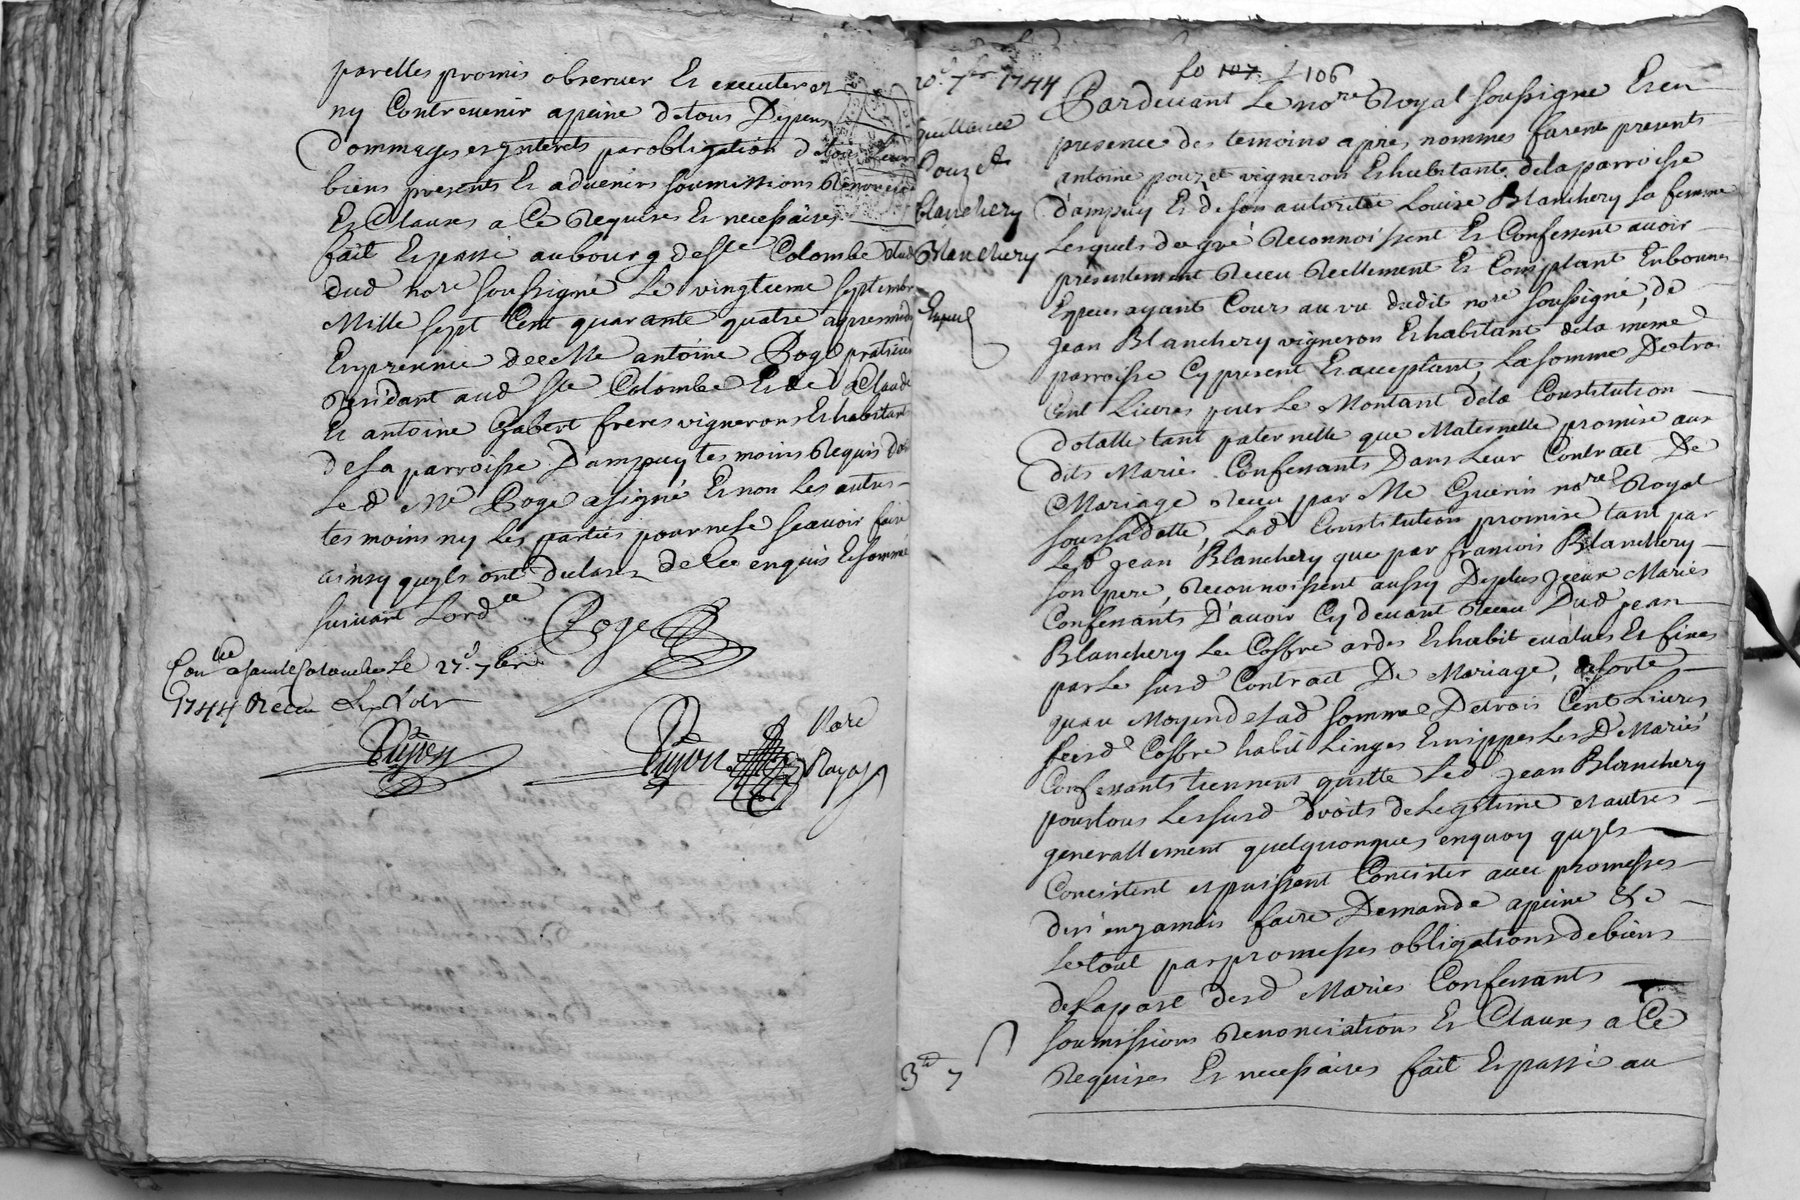 parelles promis observer Et executer et
ny Contrevenir apeine detous Depens
Dommages et ynterets par obligation de tous leurs
biens presents Et advenirs soumissions Renon
Et Clauses a Ce Requises Et necessaires
fait Et passé au bourg de Ste Colombe
dud nore soussigné Le vingtieme septembre
Mille sept Cent quarante quatre apresmidy
En presence de Me antoine Roge praticien
Residant aud Ste Colombe Et de Claude
Et antoine Gabert freres vignerons Et habitants
de la parroisse Dampuy tesmoins Requis dont
Led Me Roge a signé Et non Les autres
tesmoins ny Les parties pour ne le scavoir faire
ainsy quyls ont declarez de Ce enquis Et sommé
suivant Lordce
Roge
Conllé a sainte Colombe Le 27e 7bre
1744 Receu
Nore
Royal
fo 107 106
20e 7bre 1744
quittance
Pouzet
blanchery
Blanchery
Expeé
Pardevant Le nore Royal soussigne Et en
presence des temoins apres nommes furent presents
antoine pouzet vigneron Et habitant de la parroisse
d'ampuy Et de son autorité Louise Blanchery sa femme
Lesquels de gré Reconnoissent Et Confessent avoir
presentement Receu Reellement Et Comptant En bonnes
Especes ayant Cours au vu dudit nore soussigné, de
Jean Blanchery vigneron Et habitant de la meme
parroisse Cy present Et acceptant, La somme De troi
Cent Livres pour Le Montant de la Constitution
dotalle tant paternelle que Maternelle promise aux
dits Mariés Confessants Dans Leur Contract De
Mariage Receu par Me Guerin nore Royal
sous sa Datte, Lad Constitution promise tant par
Led Jean Blanchery que par francois Blanchery
son pere, Reconnoissent aussy Deplus yceux Mariés
Confessants D'avoir Cy devant Receu Dud jean
Blanchery Le Coffre ardes Et habit evalues Et fixes
par Le susd Contract De Mariage, de sorte
quau Moyen de Lad somme De trois Cent Livres
Coffre habit Linges Et nippes Les Dts Mariés
Confessants tiennent quitte Led Jean Blanchery
pour tous Les susd droits de Legitime et autres
generallement quelquonques en quoy quyls
Concistent et puissent Concister avec promesses
den en jamais faire Demande apeine &c
Le tout par promesses obligations de biens
de La part desd Mariés Confessants
soumissions Renonciations Et Clauses a Ce
Requises Et necessaires fait Et passé au